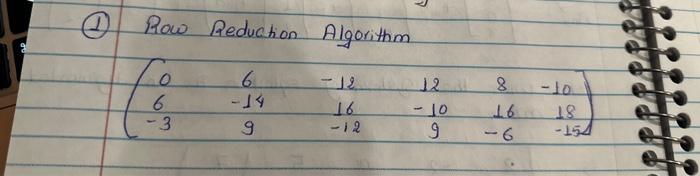 ① Row Reduction Algorithm
0 6 -12 12 8 -10
6 -14 16 -10 16 18
-3 9 -12 9 -6 -15